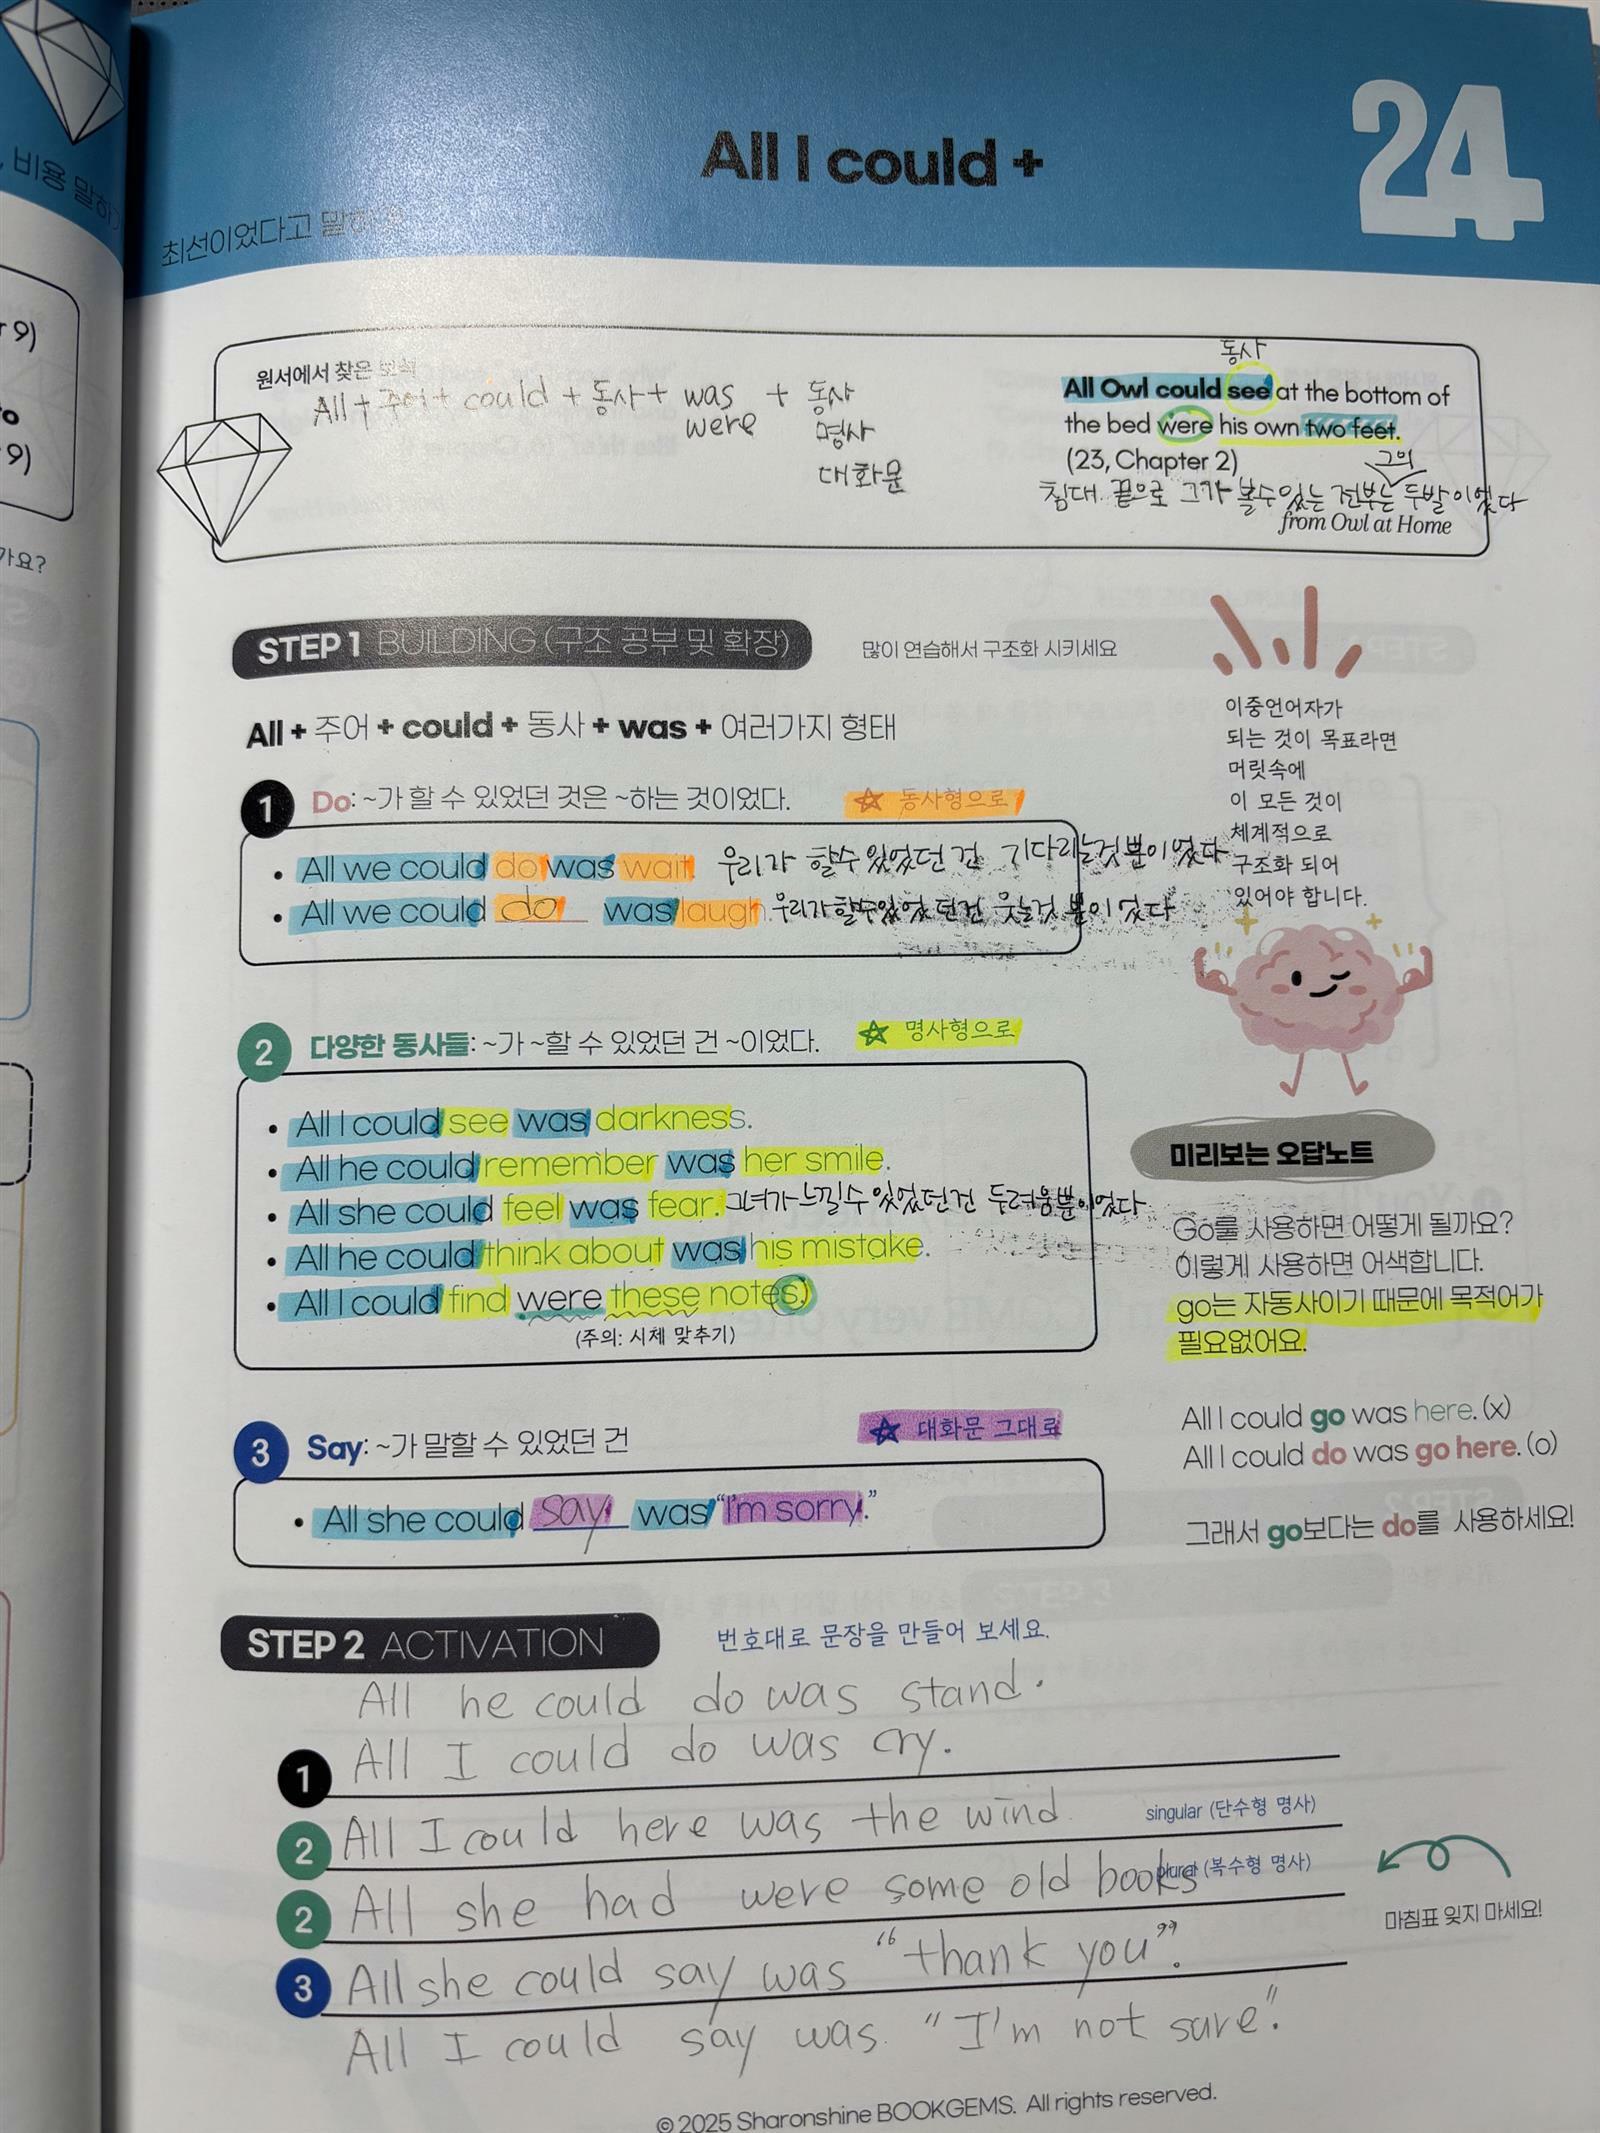 , 비용 말하
24
All I could +
최선이었다고 말하
r 9)
9)
가요?
원서에서 찾은 보석
All + 주어 + could + 동사 + was + 동사
were 명사
대화문
동사
All Owl could see at the bottom of
the bed were his own two feet.
(23, Chapter 2)
그의
침대 끝으로 그가 볼수있는 전부는 두발이었다
from Owl at Home
STEP 1 BUILDING (구조 공부 및 확장)
많이 연습해서 구조화 시키세요
All + 주어 + could + 동사 + was + 여러가지 형태
1 Do: ~가 할 수 있었던 것은 ~하는 것이었다.
☆ 동사형으로
• All we could do was wait. 우리가 할수있었던건 기다리는것뿐이었다
• All we could do was laugh. 우리가할수있었던건 웃는것뿐이었다
이중언어자가
되는 것이 목표라면
머릿속에
이 모든 것이
체계적으로
구조화 되어
있어야 합니다.
2 다양한 동사들: ~가 ~할 수 있었던 건 ~이었다.
☆ 명사형으로
• All I could see was darkness.
• All he could remember was her smile.
• All she could feel was fear. 그녀가느낄수있었던건 두려움뿐이었다
• All he could think about was his mistake.
• All I could find were these notes.
(주의: 시제 맞추기)
미리보는 오답노트
Go를 사용하면 어떻게 될까요?
이렇게 사용하면 어색합니다.
go는 자동사이기 때문에 목적어가
필요없어요.
All I could go was here. (x)
All I could do was go here. (o)
그래서 go보다는 do를 사용하세요!
3 Say: ~가 말할 수 있었던 건
☆ 대화문 그대로
• All she could say was “I'm sorry.”
STEP 2 ACTIVATION
번호대로 문장을 만들어 보세요.
All he could do was stand.
1 All I could do was cry.
2 All I could here was the wind
singular (단수형 명사)
2 All she had were some old books
plural (복수형 명사)
마침표 잊지 마세요!
3 All she could say was “thank you”.
All I could say was. "I'm not sure".
© 2025 Sharonshine BOOKGEMS. All rights reserved.